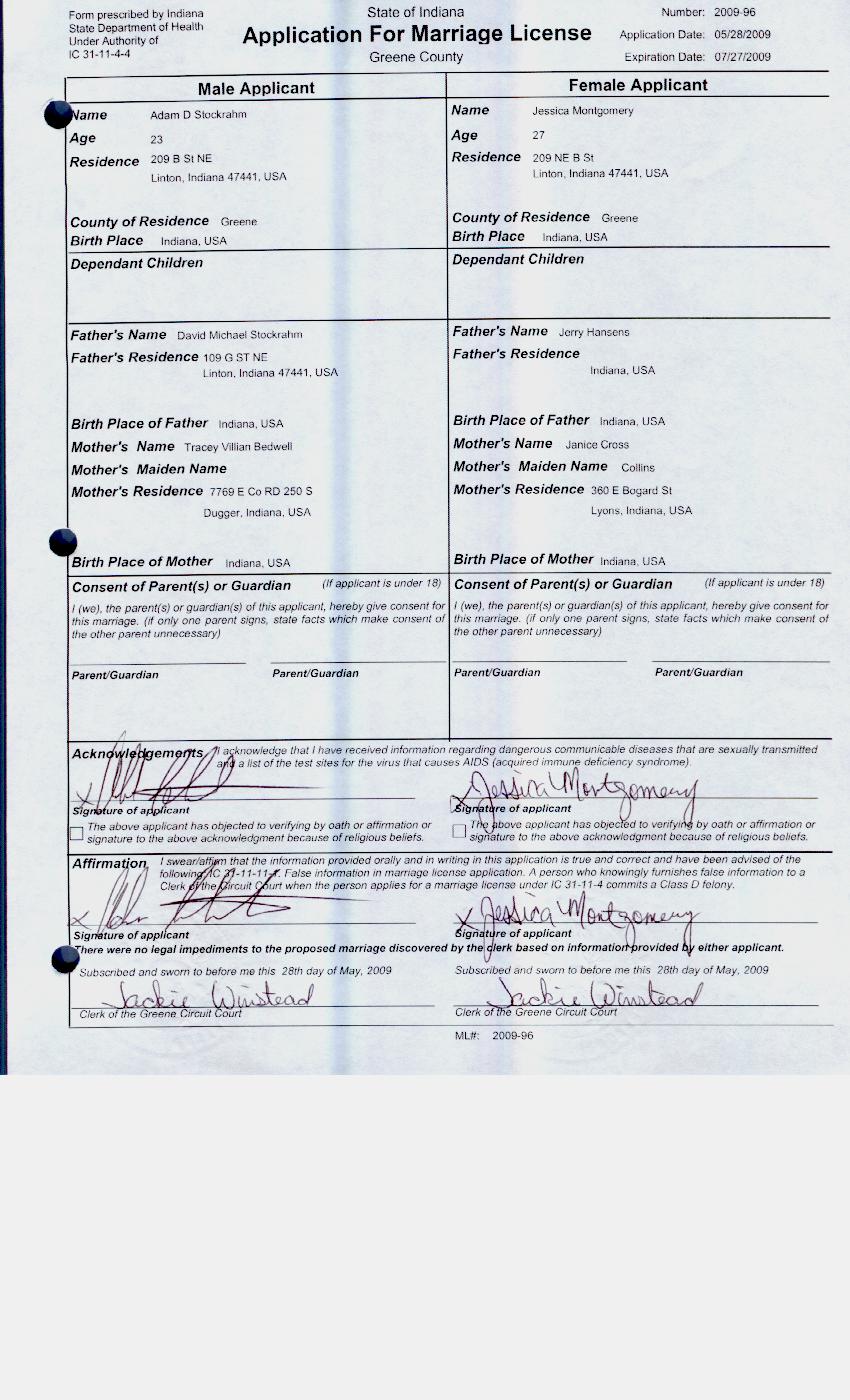 Form prescribed by Indiana
State Department of Health
Under Authority of
IC 31-11-4-4
State of Indiana
Application For Marriage License
Greene County
Number: 2009-96
Application Date: 05/28/2009
Expiration Date: 07/27/2009
Male Applicant
Name Adam D Stockrahm
Age 23
Residence 209 B St NE
Linton, Indiana 47441, USA
County of Residence Greene
Birth Place Indiana, USA
Dependant Children
Father's Name David Michael Stockrahm
Father's Residence 109 G ST NE
Linton, Indiana 47441, USA
Birth Place of Father Indiana, USA
Mother's Name Tracey Villian Bedwell
Mother's Maiden Name
Mother's Residence 7769 E Co RD 250 S
Dugger, Indiana, USA
Birth Place of Mother Indiana, USA
Consent of Parent(s) or Guardian (If applicant is under 18)
I (we), the parent(s) or guardian(s) of this applicant, hereby give consent for
this marriage. (if only one parent signs, state facts which make consent of
the other parent unnecessary)
Parent/Guardian Parent/Guardian
Female Applicant
Name Jessica Montgomery
Age 27
Residence 209 NE B St
Linton, Indiana 47441, USA
County of Residence Greene
Birth Place Indiana, USA
Dependant Children
Father's Name Jerry Hansens
Father's Residence
Indiana, USA
Birth Place of Father Indiana, USA
Mother's Name Janice Cross
Mother's Maiden Name Collins
Mother's Residence 360 E Bogard St
Lyons, Indiana, USA
Birth Place of Mother Indiana, USA
Consent of Parent(s) or Guardian (If applicant is under 18)
I (we), the parent(s) or guardian(s) of this applicant, hereby give consent for
this marriage. (if only one parent signs, state facts which make consent of
the other parent unnecessary)
Parent/Guardian Parent/Guardian
Acknowledgements I acknowledge that I have received information regarding dangerous communicable diseases that are sexually transmitted
and a list of the test sites for the virus that causes AIDS (acquired immune deficiency syndrome).
x
Signature of applicant
The above applicant has objected to verifying by oath or affirmation or
signature to the above acknowledgment because of religious beliefs.
x Jessica Montgomery
Signature of applicant
The above applicant has objected to verifying by oath or affirmation or
signature to the above acknowledgment because of religious beliefs.
Affirmation I swear/affirm that the information provided orally and in writing in this application is true and correct and have been advised of the
following IC 31-11-11-1. False information in marriage license application. A person who knowingly furnishes false information to a
Clerk of the Circuit Court when the person applies for a marriage license under IC 31-11-4 commits a Class D felony.
x
Signature of applicant
x Jessica Montgomery
Signature of applicant
There were no legal impediments to the proposed marriage discovered by the clerk based on information provided by either applicant.
Subscribed and sworn to before me this 28th day of May, 2009
Jackie Winstead
Clerk of the Greene Circuit Court
Subscribed and sworn to before me this 28th day of May, 2009
Jackie Winstead
Clerk of the Greene Circuit Court
ML#: 2009-96